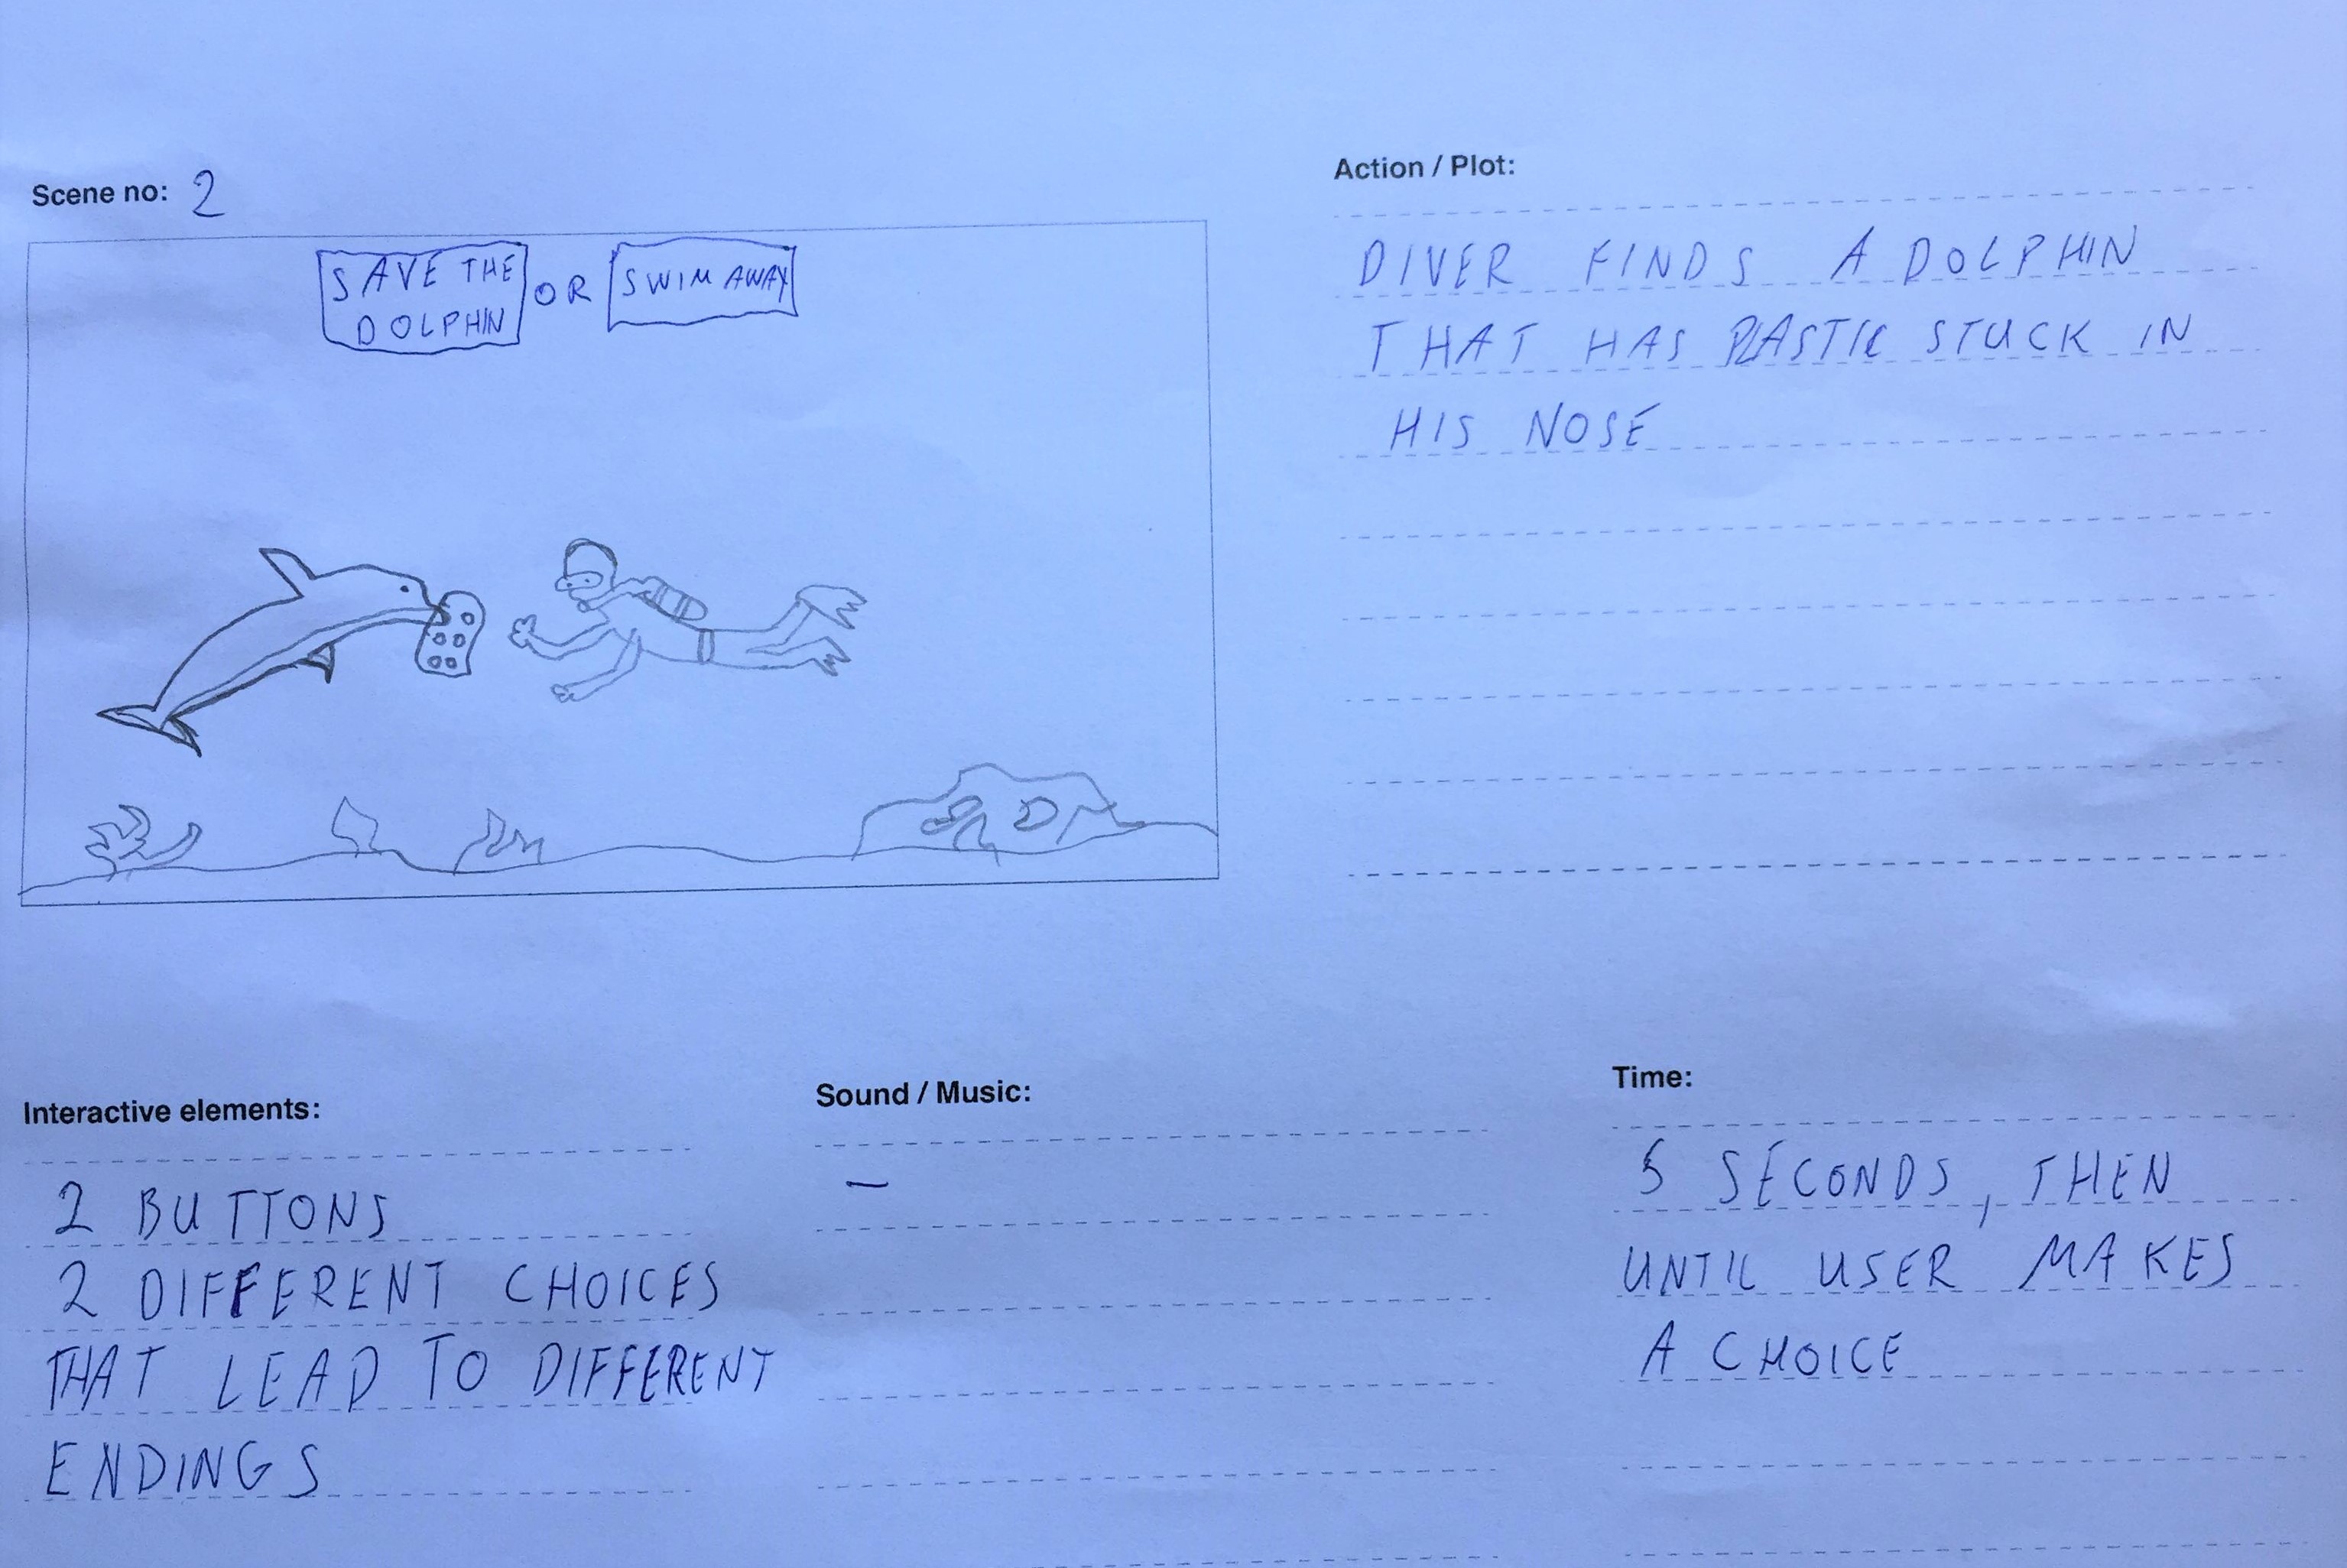 Scene no: 2
SAVE THE
DOLPHIN
OR
SWIM AWAY
Action / Plot:
DIVER FINDS A DOLPHIN
THAT HAS PLASTIC STUCK IN
HIS NOSE
Interactive elements:
2 BUTTONS
2 DIFFERENT CHOICES
THAT LEAD TO DIFFERENT
ENDINGS
Sound / Music:
—
Time:
5 SECONDS, THEN
UNTIL USER MAKES
A CHOICE